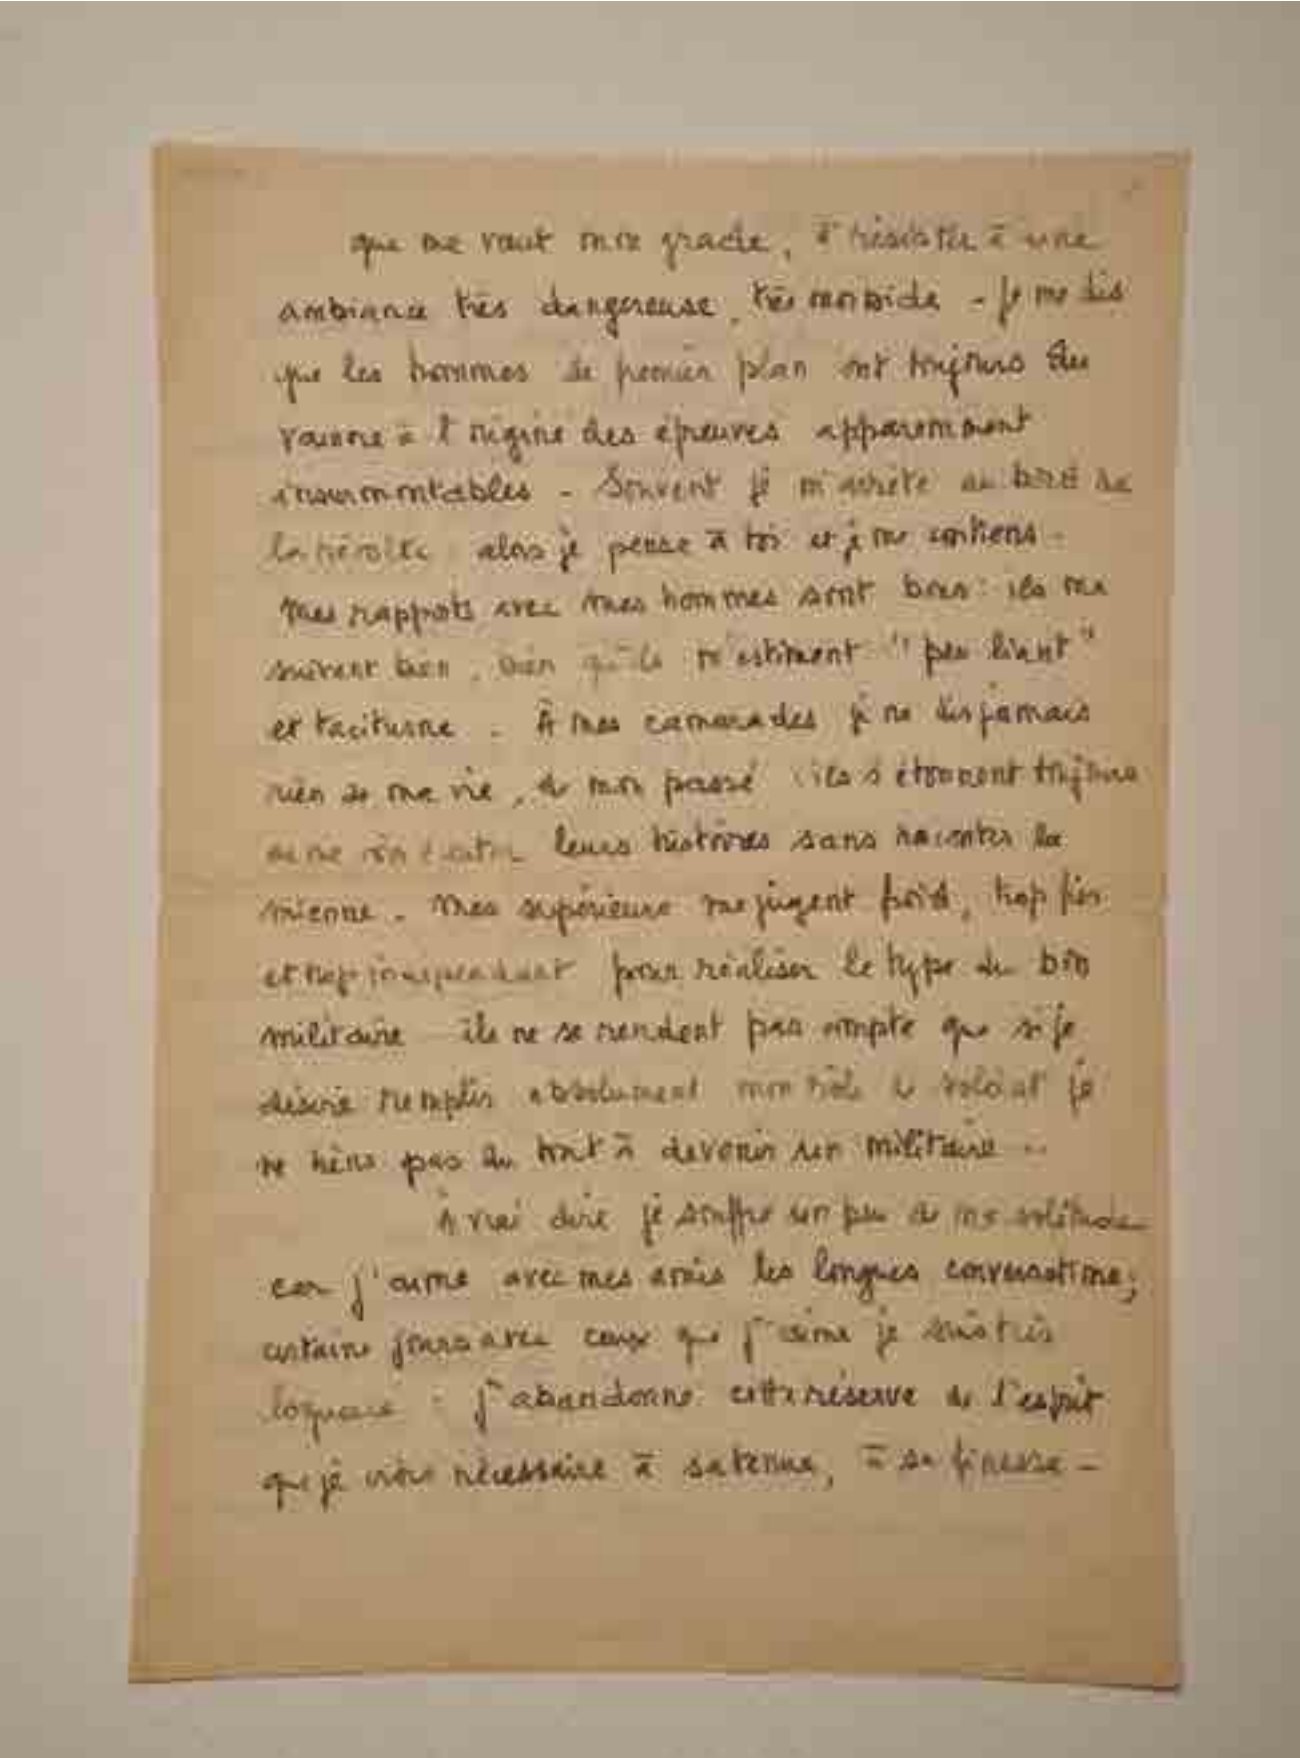 que me vaut mon grade, à résister à une
ambiance très dangereuse, très morbide - Je me dis
que les hommes de premier plan ont toujours dû
vaincre à l'origine des épreuves apparemment
insurmontables - Souvent je m'arrête au bord de
la révolte alors je pense à toi et je me contiens -
Mes rapports avec mes hommes sont bons : ils me
suivent bien, bien qu'ils m'estiment "peu liant"
et taciturne - À mes camarades je ne dis jamais
rien de ma vie, de mon passé : ils s'étonnent toujours
de me voir écouter leurs histoires sans raconter la
mienne - Mes supérieurs me jugent froid, trop fier
et trop indépendant pour réaliser le type du bon
militaire ils ne se rendent pas compte que si je
désire remplir absolument mon rôle de soldat je
ne tiens pas du tout à devenir un militaire ..
À vrai dire je souffre un peu de ma solitude
car j'aime avec mes amis les longues conversations ;
certains jours avec ceux que j'aime je suis très
loquace : j'abandonne cette réserve de l'esprit
que je crois nécessaire à sa tenue, à sa finesse -